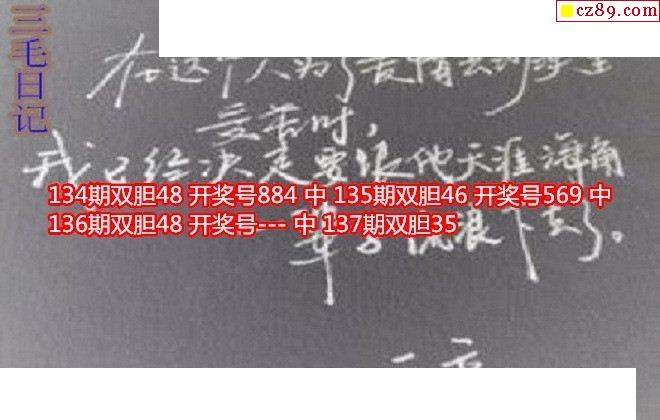 cz89.com
三毛日记
在这个人为了爱情去
受苦时，
我已经决定要跟他天涯海角
134期双胆48 开奖号884 中 135期双胆46 开奖号569 中
136期双胆48 开奖号--- 中 137期双胆35
一辈子流浪下去了。